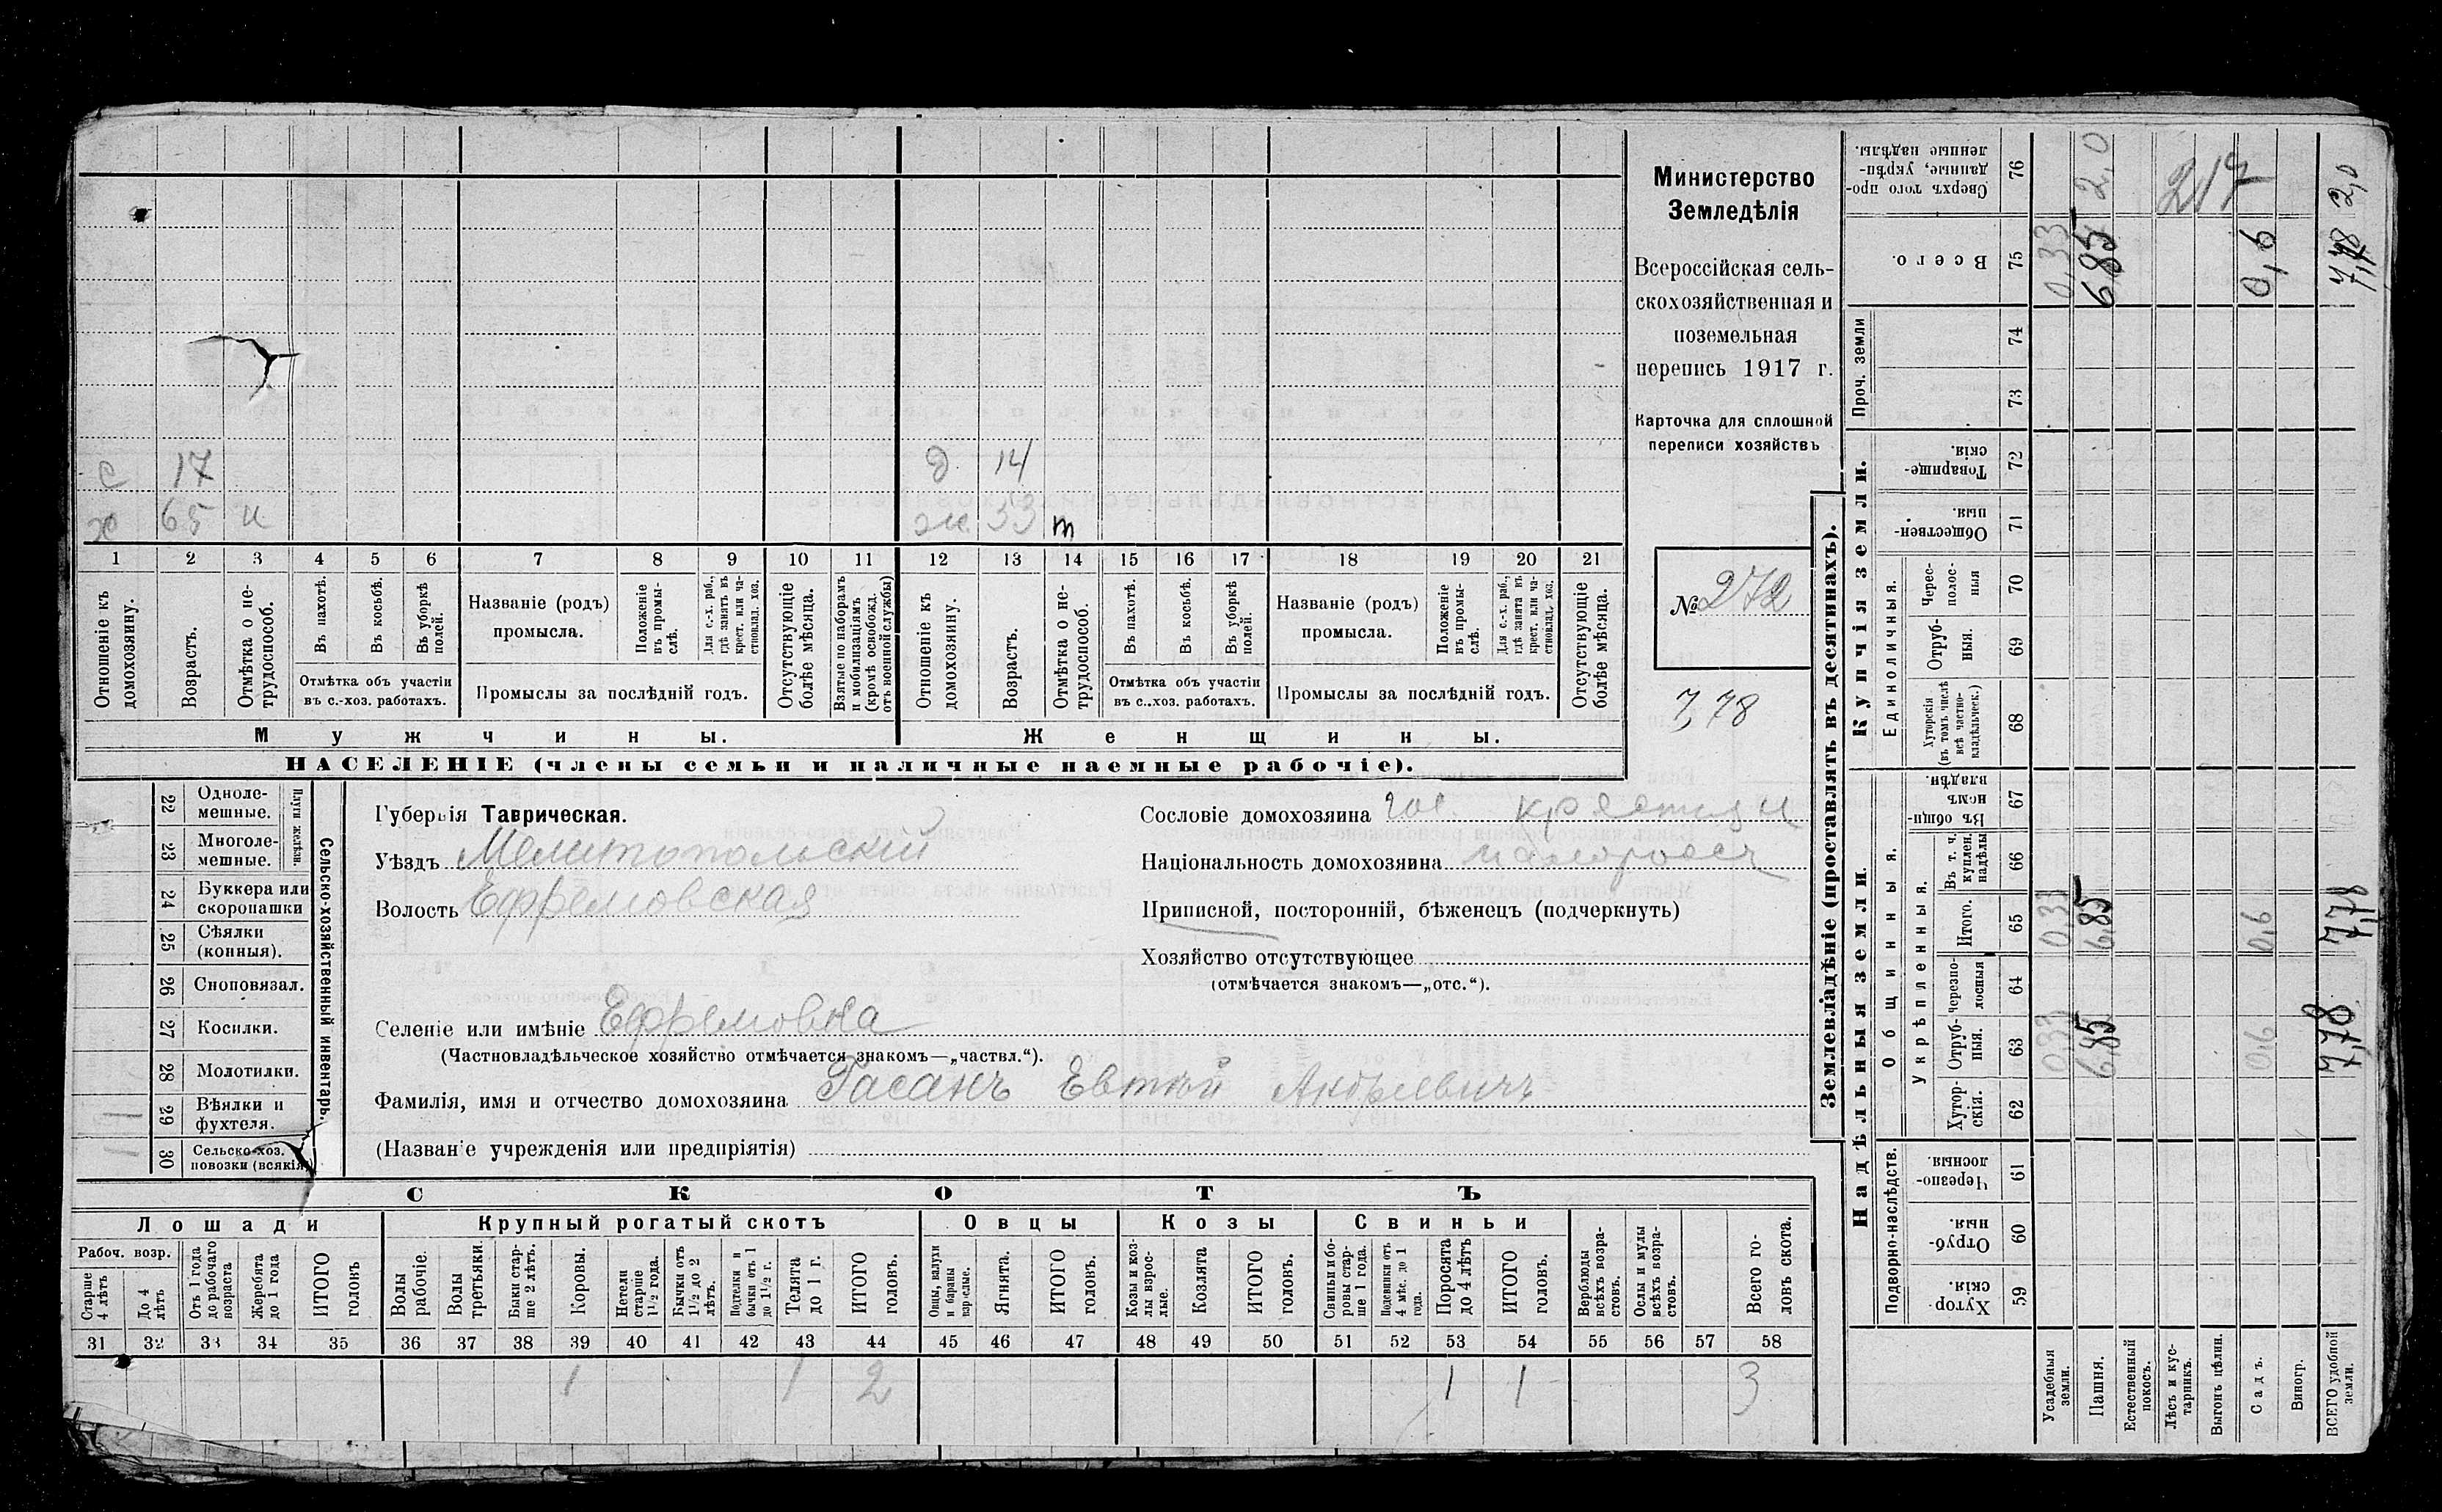 с 17 д 14
х 65 н ж 33 т
1 2 3 4 5 6 7 8 9 10 11 12 13 14 15 16 17 18 19 20 21
Отношеніе къ домохозяину.
Возрастъ.
Отмѣтка о нетрудоспособ.
Въ пахотѣ.
Въ косьбѣ.
Въ уборкѣ полей.
Отмѣтка объ участіи
въ с.-хоз. работахъ.
Названіе (родъ)
промысла.
Положеніе въ промыслѣ.
Для с.-х. раб., гдѣ занятъ въ крест. или частновлад. хоз.
Промыслы за послѣдній годъ.
Отсутствующіе болѣе мѣсяца.
Взятые по наборамъ и мобилизаціямъ (кромѣ освобожд. отъ военной службы)
Отношеніе къ домохозяину.
Возрастъ.
Отмѣтка о нетрудоспособ.
Въ пахотѣ.
Въ косьбѣ.
Въ уборкѣ полей.
Отмѣтка объ участіи
въ с..хоз. работахъ.
Названіе (родъ)
промысла.
Положеніе въ промыслѣ.
Для с.-х. раб., гдѣ занята въ крест. или частновлад. хоз.
Промыслы за послѣдній годъ.
Отсутствующіе болѣе мѣсяца.
Мужчины. Женщины.
НАСЕЛЕНІЕ (члены семьи и наличные наемные рабочіе).
Министерство
Земледѣлія
Всероссійская сель-
скохозяйственная и
поземельная
перепись 1917 г.
Карточка для сплошной
переписи хозяйствъ
№ 272
7,78
22 Однолемешные.
23 Многолемешные.
Плуги желѣзн.
24 Буккера или скоропашки
25 Сѣялки (конныя).
26 Сноповязал.
27 Косилки.
28 Молотилки.
29 Вѣялки и фухтеля. 1
30 Сельско-хоз. повозки (всякія) 1
Сельско-хозяйственный инвентарь.
Губернія Таврическая.
Уѣздъ Мелитопольскій
Волость Ефремовская
Селеніе или имѣніе Ефремовка
(Частновладѣльческое хозяйство отмѣчается знакомъ—„частвл.“).
Фамилія, имя и отчество домохозяина Гасанъ Евтий Андреевичъ
(Названіе учрежденія или предпріятія)
Сословіе домохозяина гос. крестян
Національность домохозяина малороссъ
Приписной, посторонній, бѣженецъ (подчеркнуть)
Хозяйство отсутствующее
(отмѣчается знакомъ—„отс.“).
СКОТЪ
Лошади Крупный рогатый скотъ Овцы Козы Свиньи
Рабоч. возр.
Старше 4 лѣтъ
До 4 лѣтъ
Отъ 1 года до рабочаго возраста
Жеребята до 1 года
ИТОГО головъ
Волы рабочіе.
Волы третьяки.
Быки старше 2 лѣтъ.
Коровы.
Нетели старше 1½ года.
Бычки отъ 1½ до 2 лѣтъ.
Подтелки и бычки отъ 1 до 1½ г.
Телята до 1 г.
ИТОГО головъ.
Овцы, валухи и бараны взрослые.
Ягнята.
ИТОГО головъ.
Козы и козлы взрослые.
Козлята
ИТОГО головъ.
Свиньи и боровы старше 1 года.
Подсвинки отъ 4 мѣс. до 1 года.
Поросята до 4 лѣтъ
ИТОГО головъ.
Верблюды всѣхъ возрастовъ.
Ослы и мулы всѣхъ возрастовъ.
Всего головъ скота.
31 32 33 34 35 36 37 38 39 40 41 42 43 44 45 46 47 48 49 50 51 52 53 54 55 56 57 58
1 1 2 1 1 3
Землевладѣніе (проставлять въ десятинахъ).
Надѣльныя земли.
Купчія земли.
Проч. земли
Подворно-наслѣдств.
Общинныя.
Укрѣпленныя.
Единоличныя.
Сверхъ того проданные, укрѣпленные надѣлы. 76 2,0 2,0
217
Всего. 75 0,33 6,85 0,6 7,78
74
73
Товарищескія. 72
Общественныя. 71
Череспол&#1086;сныя 70
Отрубныя. 69
Хуторскія (въ томъ числѣ всѣ частновладѣльческ.) 68
Въ общинномъ владѣн. 67
Въ т. ч. куплен. надѣлы 66
Итого. 65 0,33 6,85 0,6 7,78
Черезполосныя 64
Отрубныя. 63 0,33 6,85 0,6 7,78
Хуторскія. 62
Черезполосныя. 61
Отрубныя. 60
Хуторскія. 59
Усадебныя земли.
Пашня.
Естественный покосъ.
Лѣсъ и кустарникъ.
Выгонъ цѣлин.
Садъ.
Виногр.
ВСЕГО удобной земли.